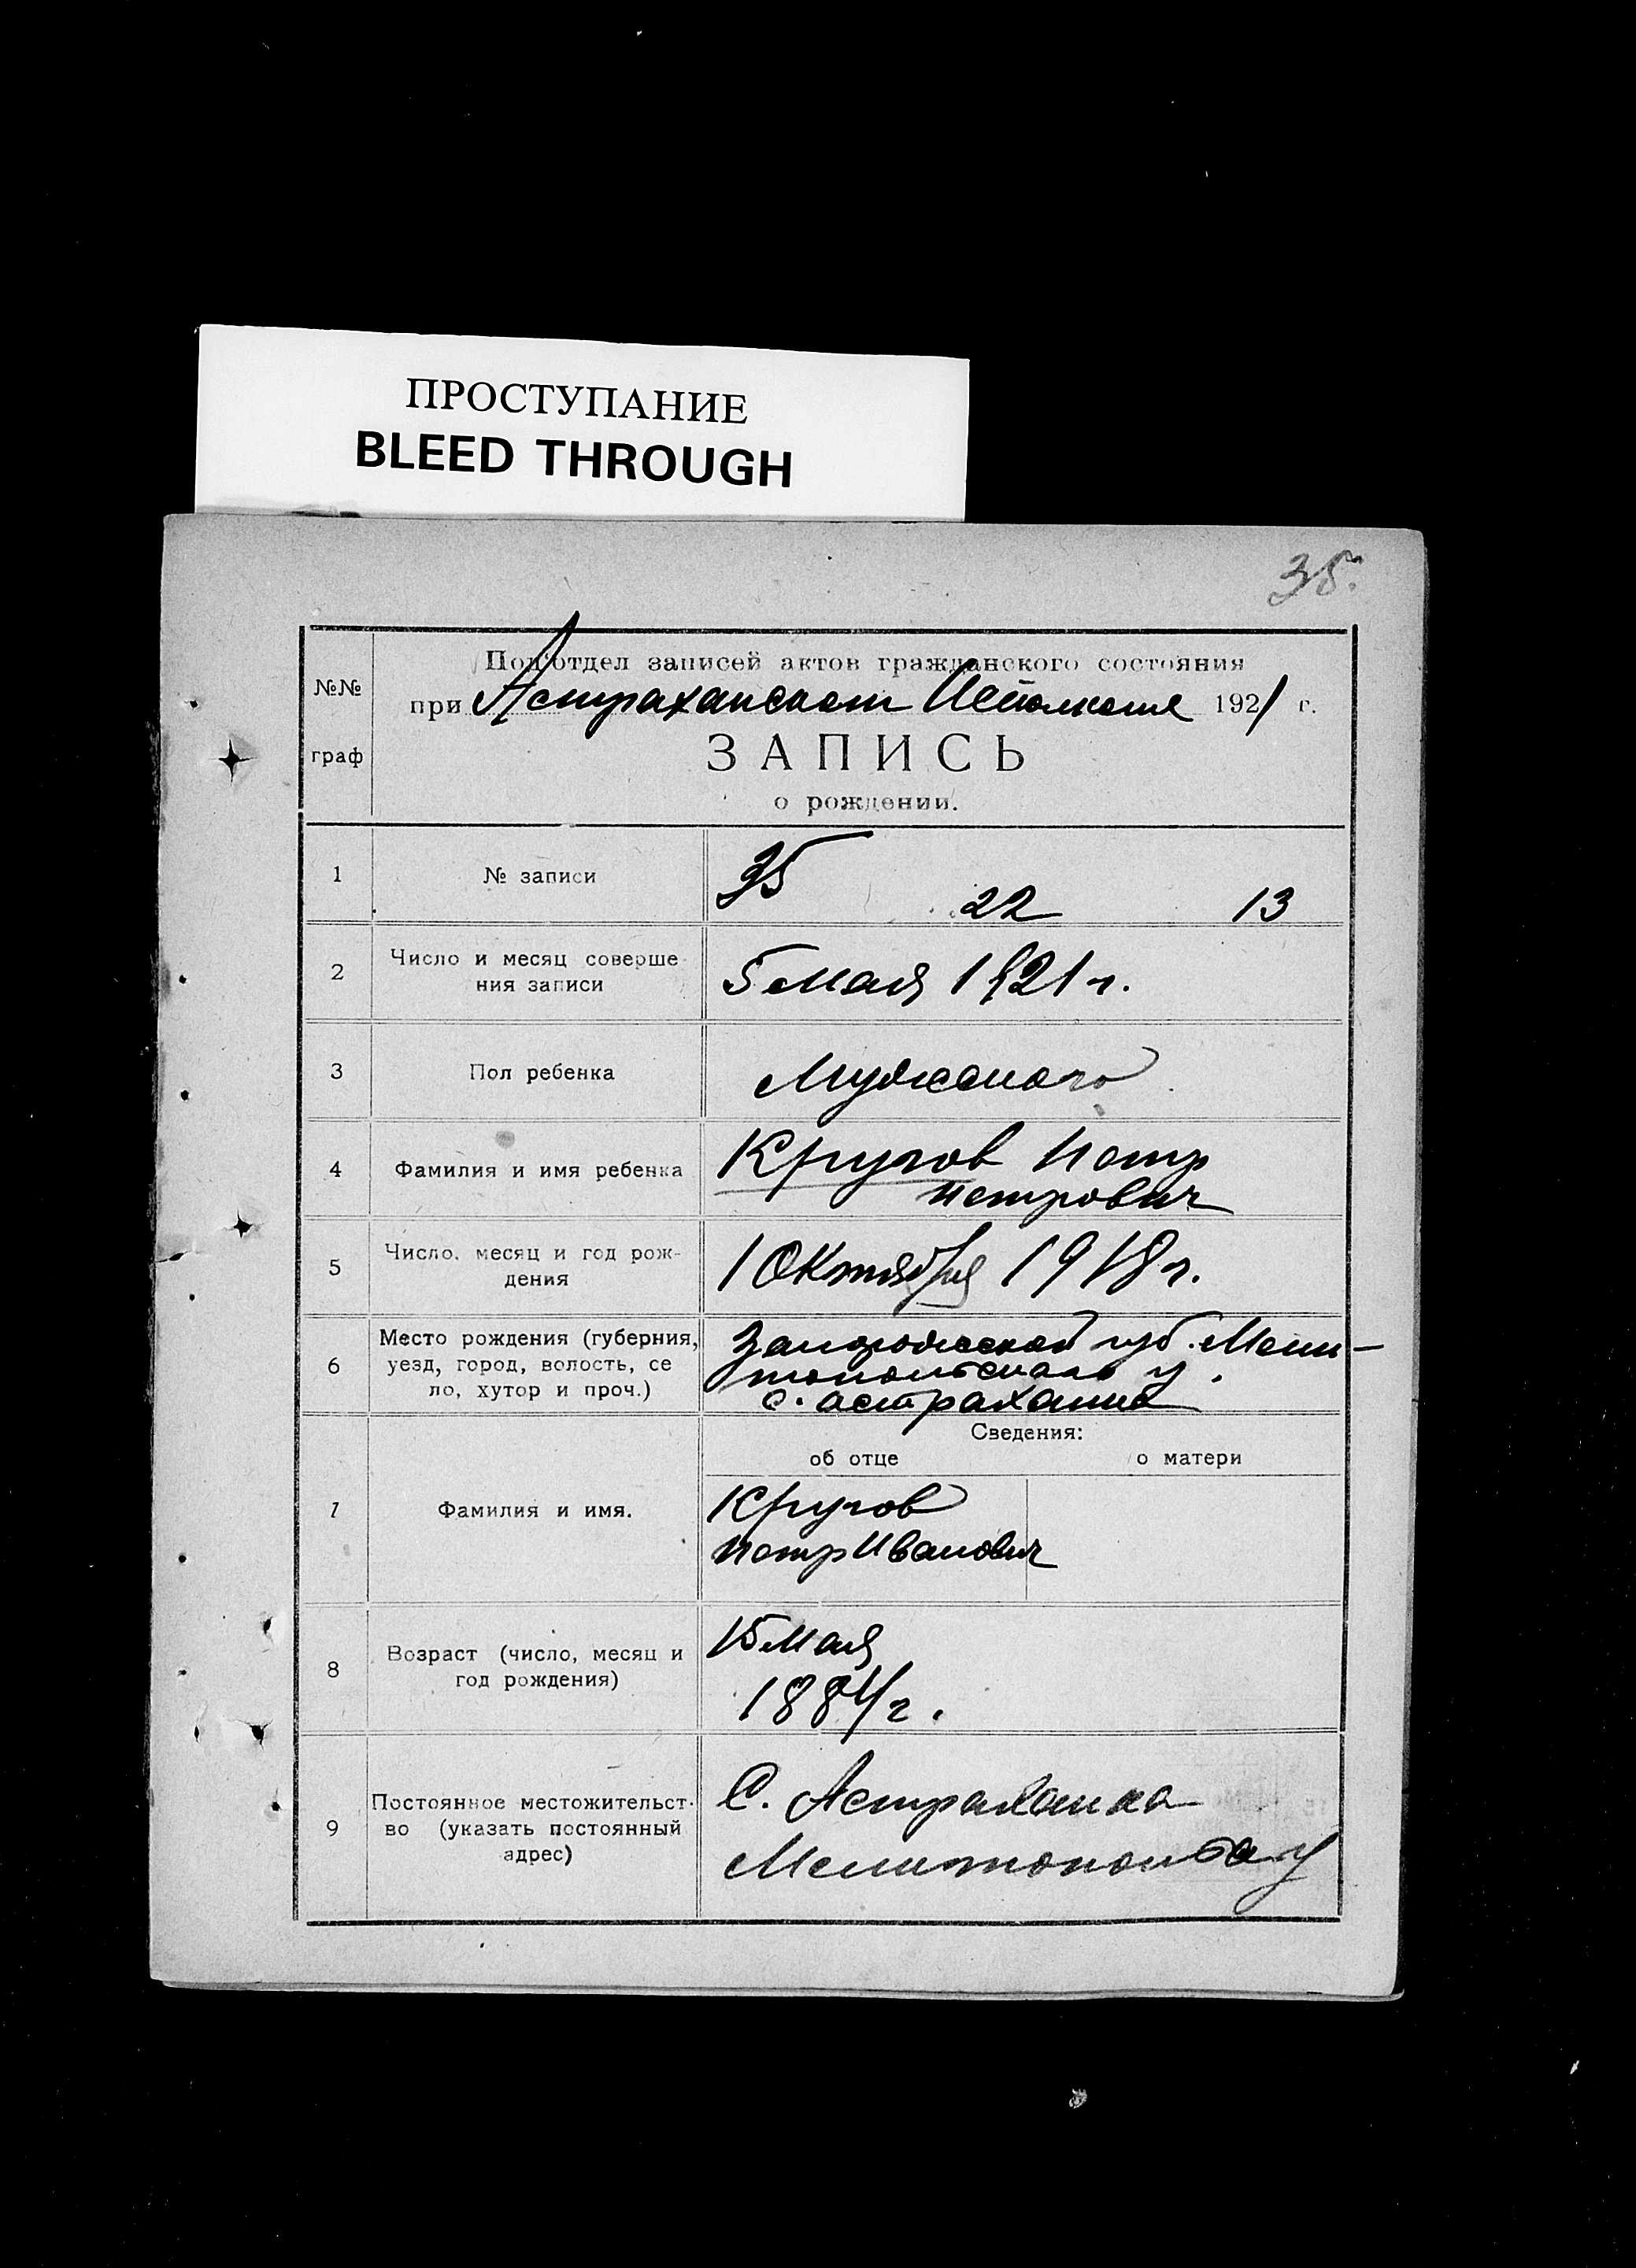 ПРОСТУПАНИЕ
BLEED THROUGH
35.
№№ граф
Под'отдел записей актов гражданского состояния
при Астраханском Исполкоме 1921 г.
ЗАПИСЬ
о рождении.
1 № записи 35 22 13
2 Число и месяц соверше-
ния записи
5 Мая 1921 г.
3 Пол ребенка Мужского
4 Фамилия и имя ребенка Кругов Петр
Петрович
5 Число, месяц и год рож-
дения
1 Октября 1918 г.
6 Место рождения (губерния,
уезд, город, волость, се
ло, хутор и проч.)
Запорожской губ. Мели-
топольского у.
с. астраханка
Сведения:
об отце о матери
7 Фамилия и имя. Кругов
Петр Иванович
8 Возраст (число, месяц и
год рождения)
15 Мая
1884 г.
9 Постоянное местожительст-
во (указать постоянный
адрес)
С. Астраханка
Мелитополь у